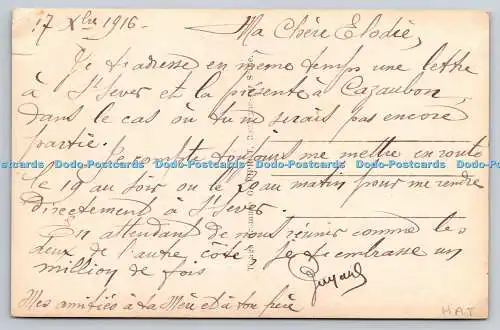 17 Xbre 1916 - Ma Chère Elodie,
Je t'adresse en même temps une lettre
à St Sever et la présente à Cazaubon,
dans le cas où tu ne serais pas encore
partie.
Je compte toujours me mettre en route
le 19 au soir ou le 20 au matin pour me rendre
directement à St Sever.
En attendant de nous réunir comme les
deux de l'autre côté, je t'embrasse un
million de fois
Mes amitiés à ta Mère et à ton père
H.A.T
Dodo-Postcards Dodo-Postcards Dodo-Postcards Dodo-Postcards Dodo-Postcards
Dodo-Postcards Dodo-Postcards Dodo-Postcards Dodo-Postcards Dodo-Postcards